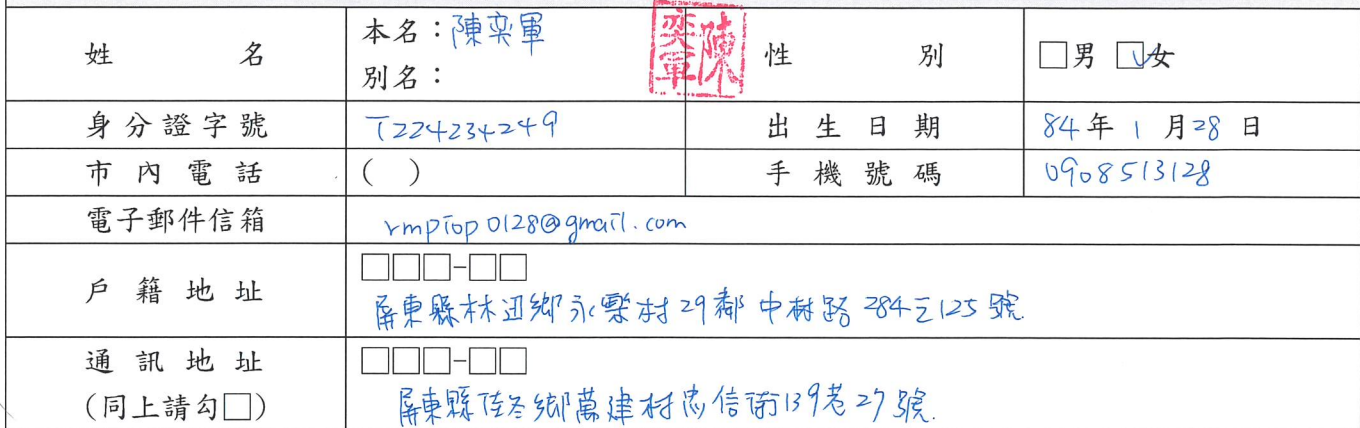 姓名 本名：陳奕軍 性別 □男 ☑女
別名：
陳奕軍
身分證字號 T224234249 出生日期 84年1月28日
市內電話 ( ) 手機號碼 0908513128
電子郵件信箱 rmpiop0128@gmail.com
戶籍地址 □□□-□□
屏東縣林边鄉永樂村29鄰中林路284之125號
通訊地址 □□□-□□
(同上請勾□) 屏東縣佳冬鄉萬建村忠信街139巷27號.